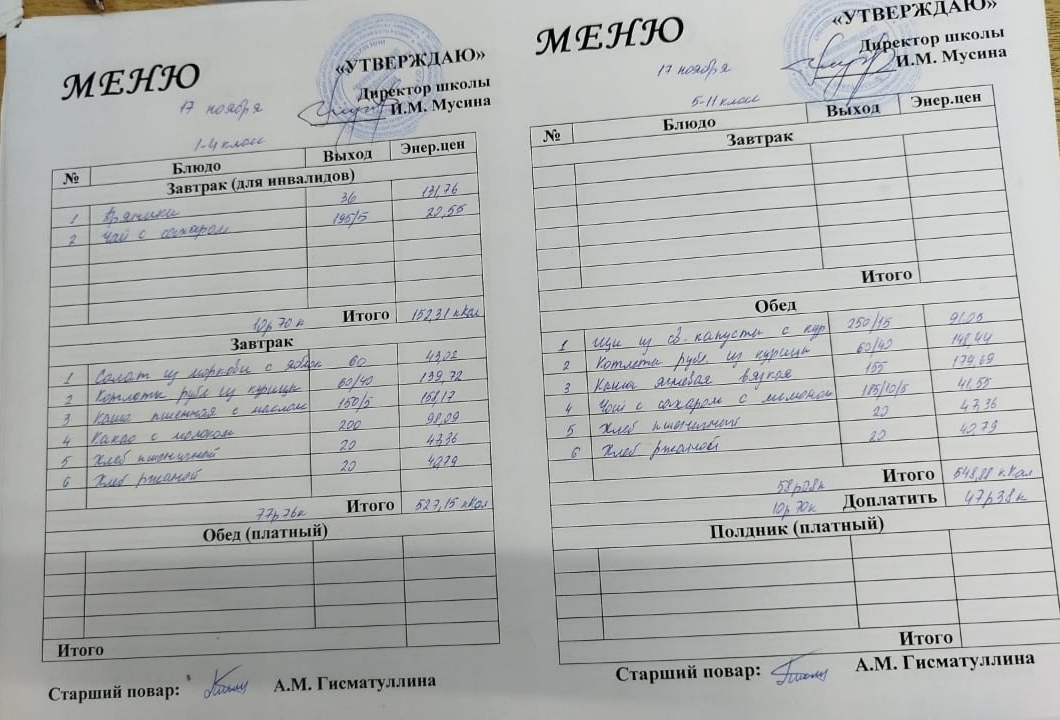 МЕНЮ
«УТВЕРЖДАЮ»
Директор школы
И.М. Мусина
17 ноября
1-4 класс
№ Блюдо Выход Энер.цен
Завтрак (для инвалидов)
1 Пряники 36 131,76
2 Чай с сахаром 195/5 20,55
10р 70к Итого 152,31 кКал
Завтрак
1 Салат из моркови с яблок 60 43,02
2 Котлета рубл из курицы 60/40 139,72
3 Каша пшенная с маслом 150/5 158,17
4 Какао с молоком 200 98,09
5 Хлеб пшеничный 20 47,36
6 Хлеб ржаной 20 40,79
77р 76к Итого 527,15 кКал
Обед (платный)
Итого
Старший повар: А.М. Гисматуллина
МЕНЮ
«УТВЕРЖДАЮ»
Директор школы
И.М. Мусина
17 ноября
5-11 класс
№ Блюдо Выход Энер.цен
Завтрак
Итого
Обед
1 Щи из св. капусты с кур 250/15 91,05
2 Котлета рубл из курицы 60/40 148,44
3 Каша ячневая вязкая 155 179,69
4 Чай с сахаром с лимоном 185/10/5 41,55
5 Хлеб пшеничный 20 47,36
6 Хлеб ржаной 20 40,79
58р08к Итого 548,88 кКал
10р 70к Доплатить 47р38к
Полдник (платный)
Итого
Старший повар: А.М. Гисматуллина